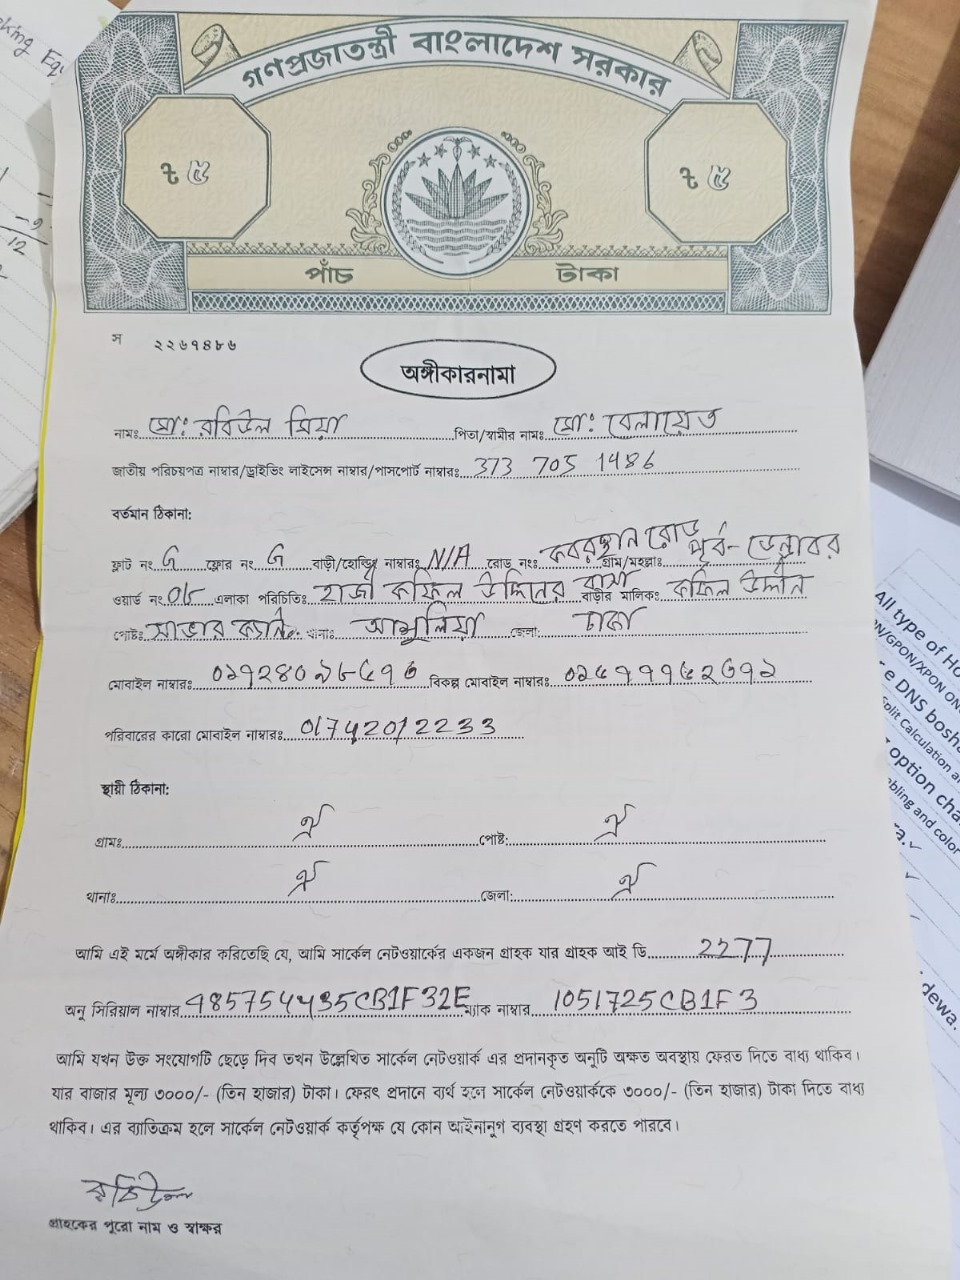 গণপ্রজাতন্ত্রী বাংলাদেশ সরকার
৳ ৫
৳ ৫
পাঁচ টাকা
স ২২৬৭৪৮৬
অঙ্গীকারনামা
নামঃ মো: রবিউল মিয়া পিতা/স্বামীর নামঃ মো: বেলায়েত
জাতীয় পরিচয়পত্র নাম্বার/ড্রাইভিং লাইসেন্স নাম্বার/পাসপোর্ট নাম্বারঃ 373 705 1486
বর্তমান ঠিকানা:
ফ্লাট নংঃ G ফ্লোর নংঃ G বাড়ী/হোল্ডিং নাম্বারঃ N/A রোড নংঃ কবরস্থান রোড গ্রাম/মহল্লাঃ পূর্ব-ডেন্ডাবর
ওয়ার্ড নংঃ এলাকা পরিচিতিঃ হাজী কফিল উদ্দিনের বাসা বাড়ীর মালিকঃ কফিল উদ্দীন
পোষ্টঃ সাভার ক্যান্টঃ থানাঃ আশুলিয়া জেলা: ঢাকা
মোবাইল নাম্বারঃ বিকল্প মোবাইল নাম্বারঃ
পরিবারের কারো মোবাইল নাম্বারঃ 01742012233
স্থায়ী ঠিকানা:
গ্রামঃ ঐ পোষ্ট: ঐ
থানাঃ ঐ জেলা: ঐ
আমি এই মর্মে অঙ্গীকার করিতেছি যে, আমি সার্কেল নেটওয়ার্কের একজন গ্রাহক যার গ্রাহক আই ডি 2277
অনু সিরিয়াল নাম্বার 485754435CB1F32E ম্যাক নাম্বার 1051725CB1F3
আমি যখন উক্ত সংযোগটি ছেড়ে দিব তখন উল্লেখিত সার্কেল নেটওয়ার্ক এর প্রদানকৃত অনুটি অক্ষত অবস্থায় ফেরত দিতে বাধ্য থাকিব।
যার বাজার মূল্য ৩০০০/- (তিন হাজার) টাকা। ফেরৎ প্রদানে ব্যর্থ হলে সার্কেল নেটওয়ার্ককে ৩০০০/- (তিন হাজার) টাকা দিতে বাধ্য
থাকিব। এর ব্যতিক্রম হলে সার্কেল নেটওয়ার্ক কর্তৃপক্ষ যে কোন আইনানুগ ব্যবস্থা গ্রহণ করতে পারবে।
রবিউল
গ্রাহকের পুরো নাম ও স্বাক্ষর
All type of
/GPON/XPON
e DNS
Split Calculation
option
and color
dewa.
12